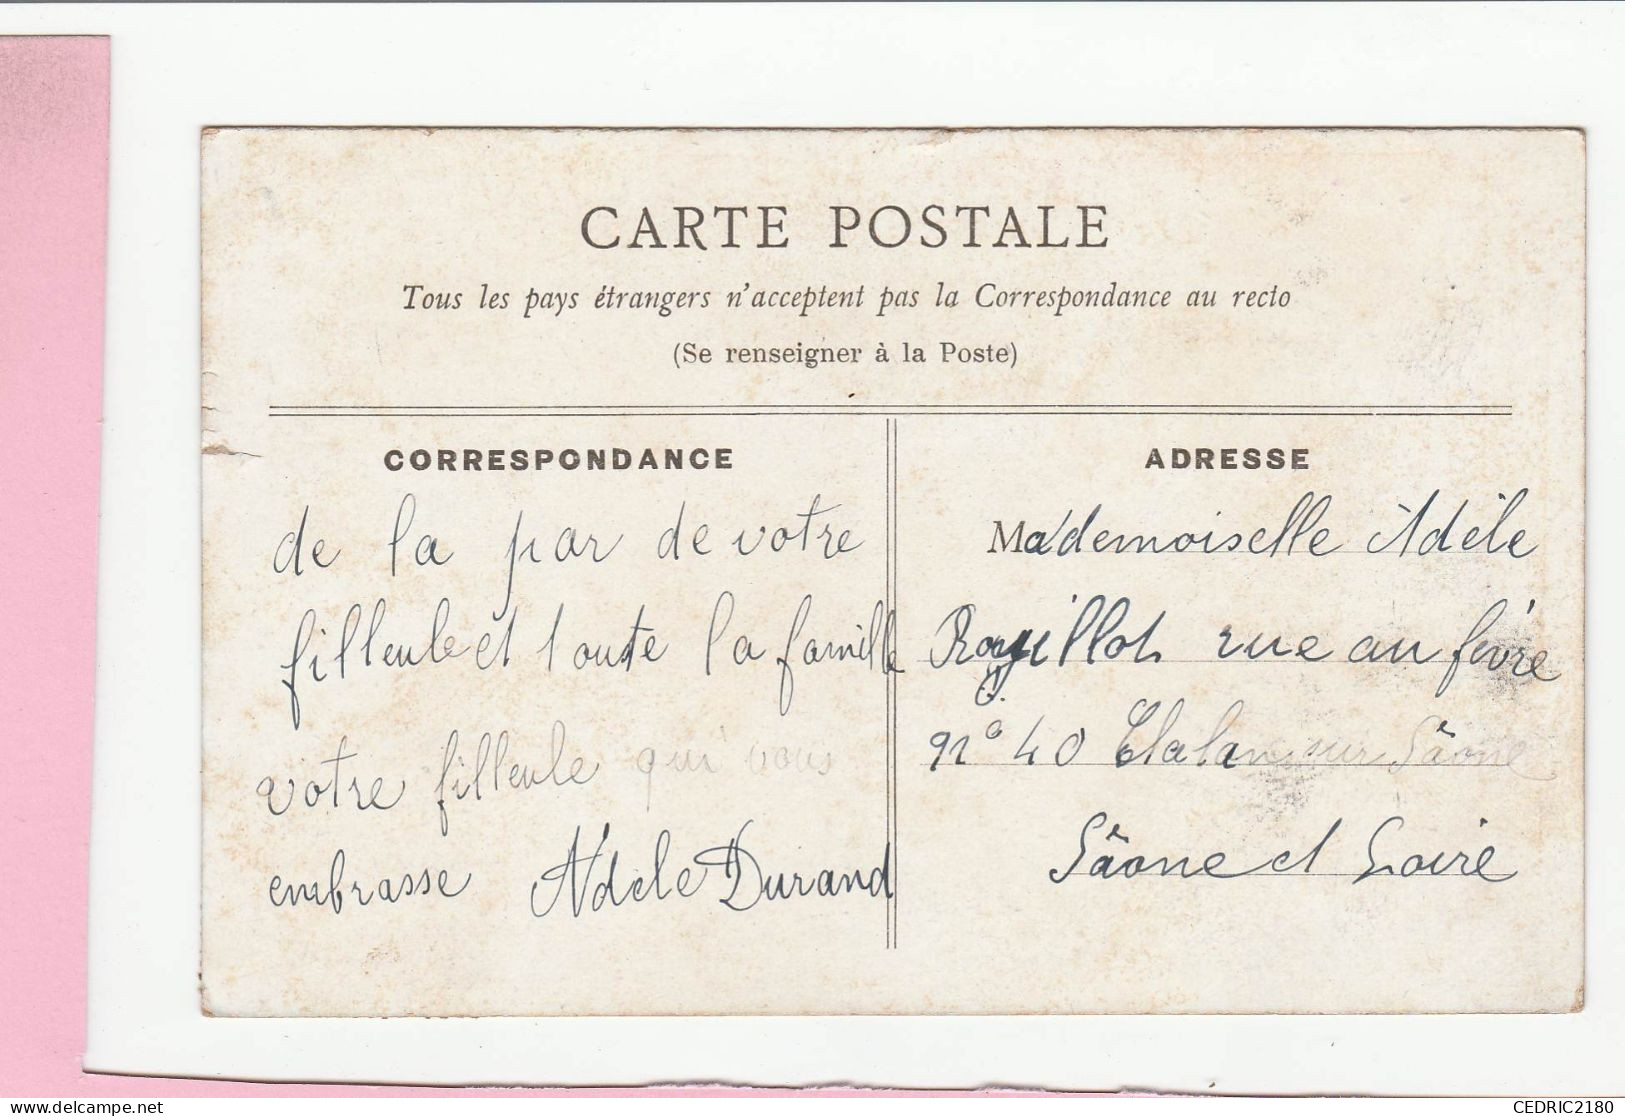 CARTE POSTALE
Tous les pays étrangers n'acceptent pas la Correspondance au recto
(Se renseigner à la Poste)
CORRESPONDANCE
de la par de votre
filleule et toute la famille
votre filleule qui vous
embrasse Adèle Durand
ADRESSE
Mademoiselle Adèle
Rouillot rue au fèvre
n° 40 Chalan sur Sâone
Sâone et Loire
CEDRIC2180